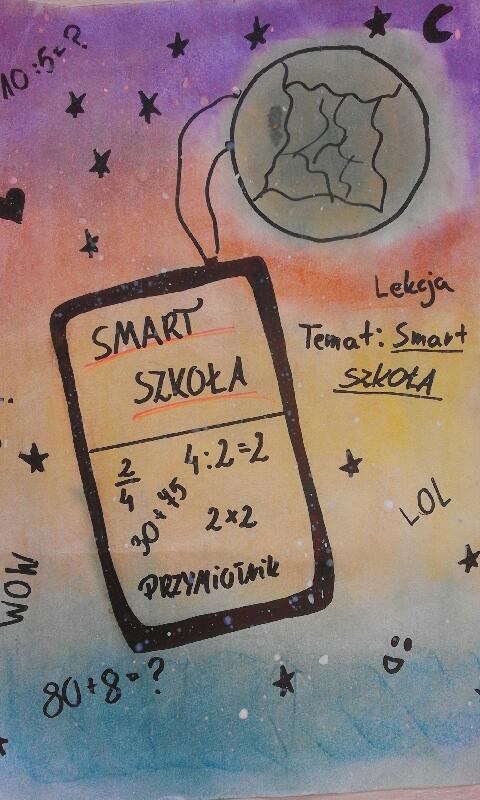 10:5=?
Lekcja
Temat: Smart
SZKOŁA
SMART
SZKOŁA
2/4
4:2=2
30+45
2x2
PRZYMIOTNIK
LOL
WOW
80+8=?